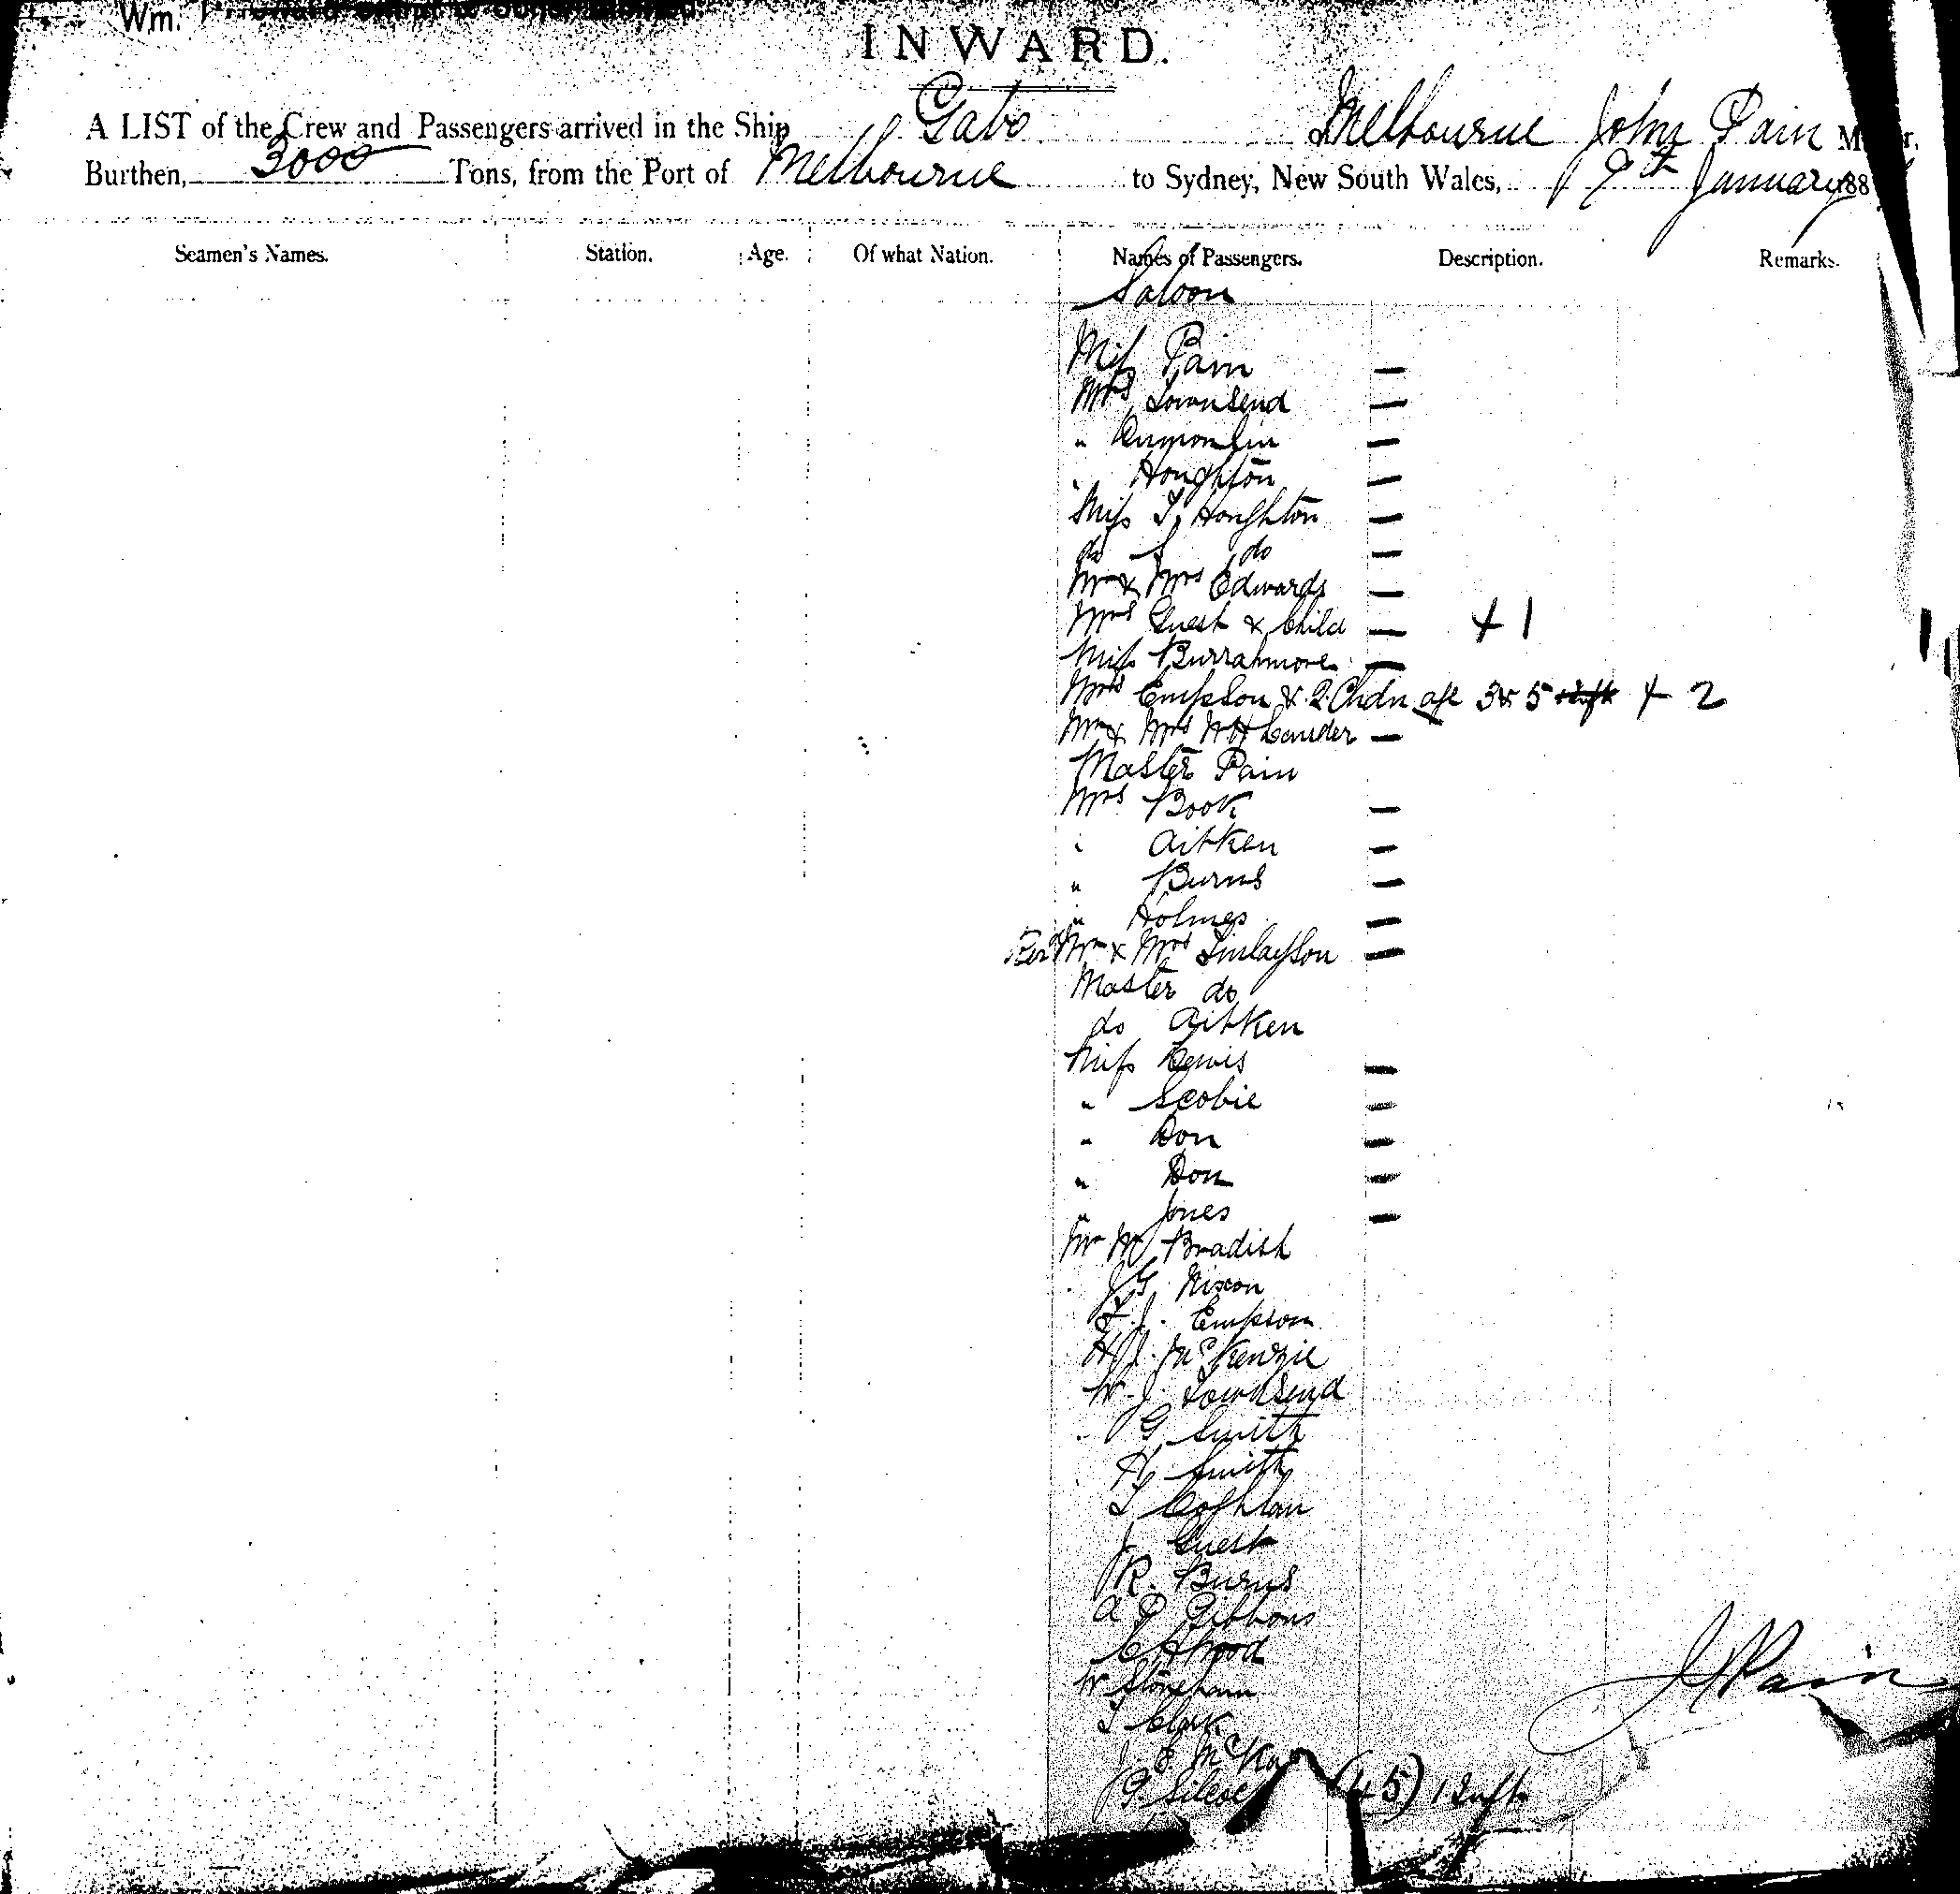 Wm.
INWARD.
A LIST of the Crew and Passengers arrived in the Ship Gabo of Melbourne John Pain
Burthen, 3000 Tons, from the Port of Melbourne to Sydney, New South Wales, 9th January 188
Seamen's Names. Station. Age. Of what Nation. Names of Passengers. Description. Remarks.
Saloon
Miss Pain —
Mrs Townsend —
" —
" Houghton —
Miss T. Houghton —
do S do —
Mr & Mrs Edwards —
Mrs Guest & Child — + 1
Miss Burrahmore —
Mrs Empson & 2 Chdn age 3 & 5 + 2
Mr & Mrs W H —
Master Pain
Mrs Book —
" Aitken —
" Burns —
" Holmes —
Revd Mr & Mrs Finlayson —
Master do
do Aitken
Miss Lewis —
" Scobie —
" Don —
" Don —
" Jones —
Mr W Bradish
J G Nixon
F. J. Empson
H J. McKenzie
W. J. Townsend
G Smith
H Smith
T Coghlan
J Guest
R. Burns
A P Gibbons
C A Wood
W Stoneham
T Clark
J E McKay
G
(45) 1 Inft
J Pain